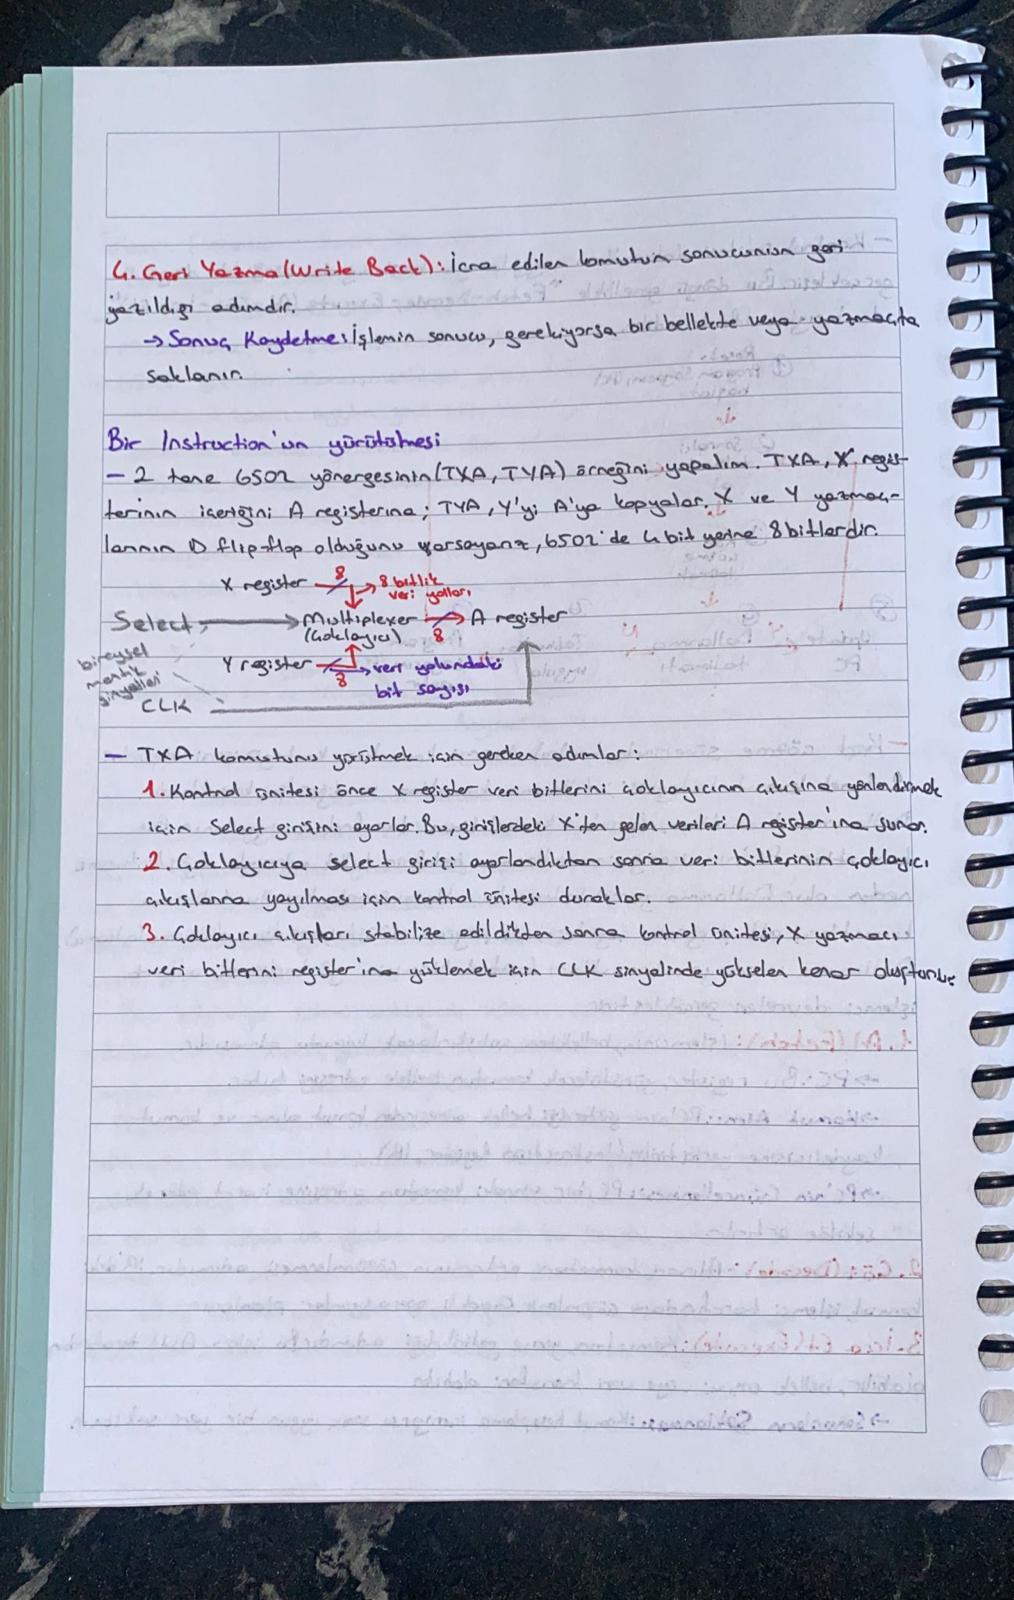 4. Geri Yazma (Write Back): İcra edilen komutun sonucunun geri
yazıldığı adımdır.
→ Sonuç Kaydetme: İşlemin sonucu, gerekiyorsa bir bellekte veya yazmaçta
saklanır.
Bir Instruction'un yürütülmesi
- 2 tane 6502 yönergesinin (TXA, TYA) örneğini yapalım. TXA, X regis-
terinin içeriğini A registerına; TYA, Y'yi A'ya kopyalar. X ve Y yazmaç-
larının D flip-flop olduğunu varsayarız, 6502'de 4 bit yerine 8 bitlerdir.
X register 8 → 8 bitlik
veri yolları
Select → Multiplexer 8 A register
(Çoklayıcı)
Y register 8 → veri yolundaki
bit sayısı
bireysel
mantık
sinyalleri
CLK
- TXA komutunu yürütmek için gereken adımlar:
1. Kontrol ünitesi önce X register veri bitlerini çoklayıcının çıkışına yönlendirmek
için Select girişini ayarlar. Bu, girişlerdeki X'ten gelen verileri A register'ına sunar.
2. Çoklayıcıya select girişi ayarlandıktan sonra veri bitlerinin çoklayıcı
çıkışlarına yayılması için kontrol ünitesi duraklar.
3. Çoklayıcı çıkışları stabilize edildikten sonra kontrol ünitesi, X yazmacı
veri bitlerini register'ına yüklemek için CLK sinyalinde yükselen kenar oluşturur.